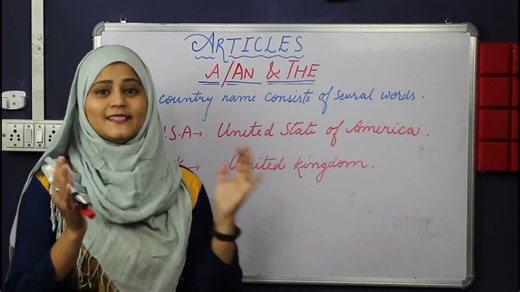 ARTICLES
A/AN & THE
country name consists of sevral words.
U.S.A → United State of America.
→ United kingdom.